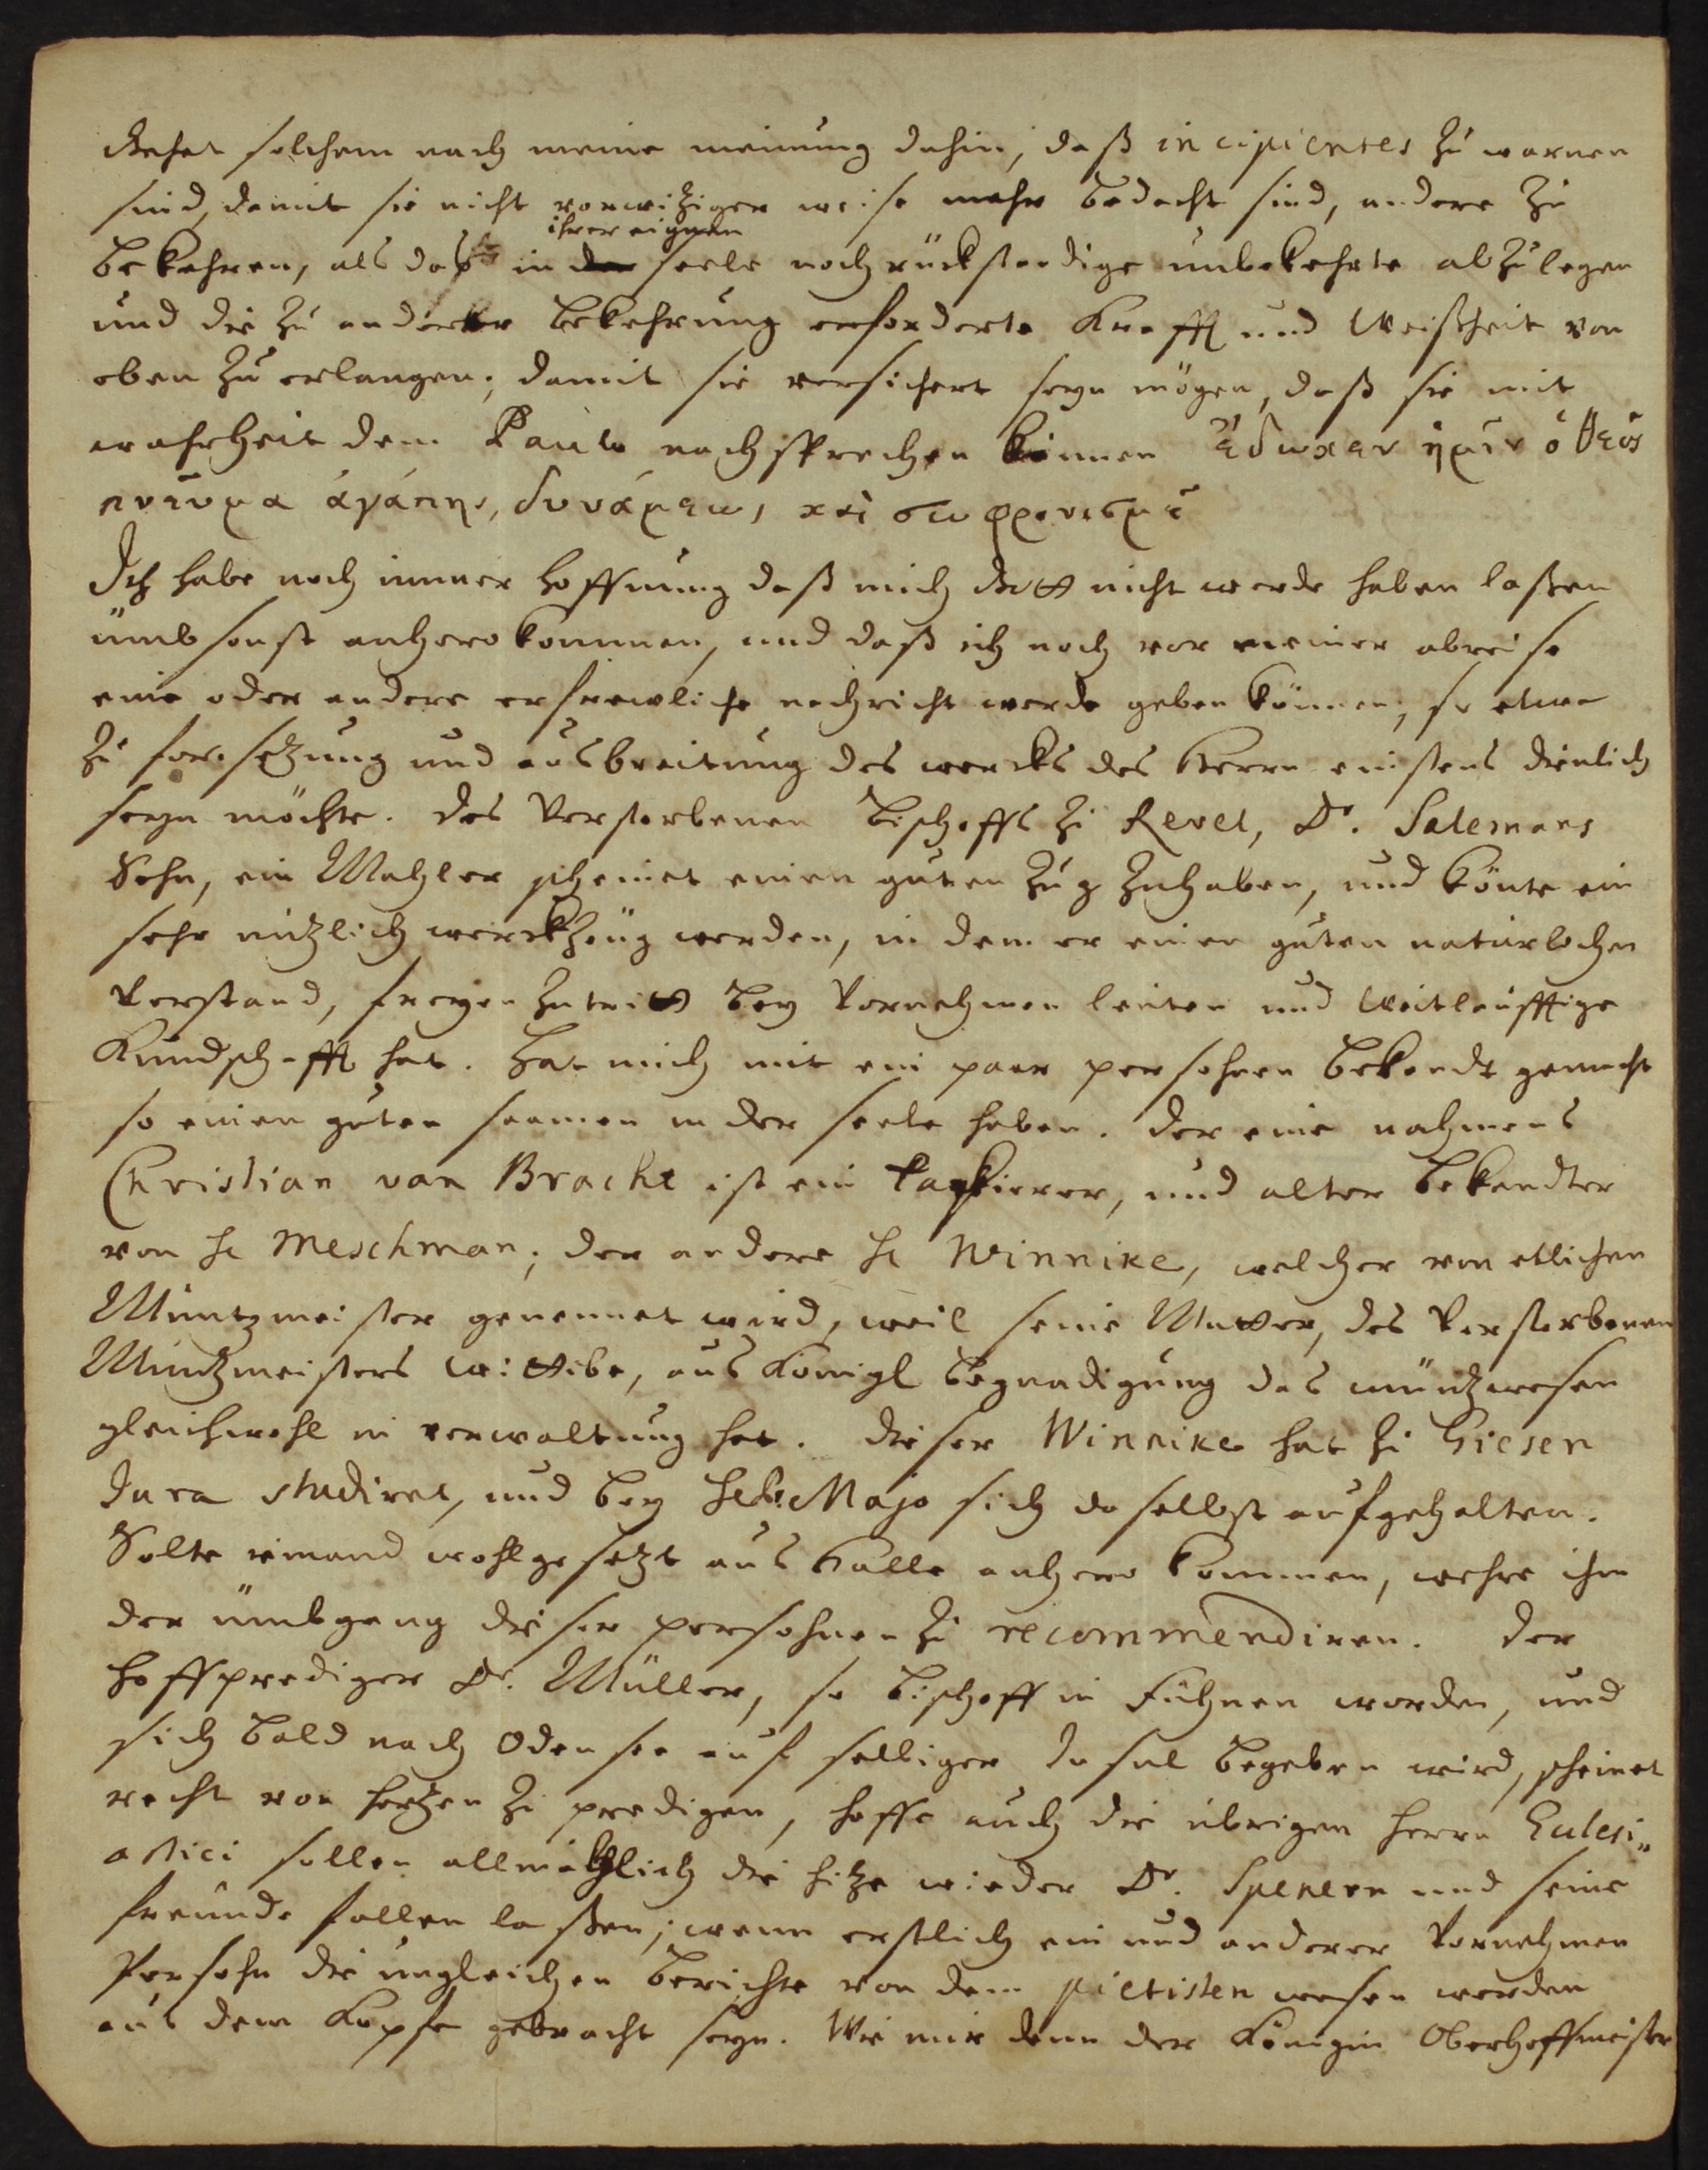 stehet solchem nach meine meinung dahin, daß incipientes zu warnen
sind, damit sie nicht vorwitziger weise mehr bedacht sind, andere zu
bekehren, als das in ihrer eignen seele noch rückständige unbekehrte abzulegen
und die zu anderer bekehrung erforderte Krafft und Weißheit von
oben zu erlangen; damit sie versichert seyn mögen, daß sie mit
wahrheit dem Paulo nachsprechen können ἔδωκεν ἡμῖν ὁ θεὸς
πνεῦμα ἀγάπης, δυνάμεως καὶ σωφρονισμοῦ
Ich habe noch immer hoffnung daß mich Gott nicht werde haben laßen
ümbsonst anhero kommen, und daß ich noch vor meiner abreise
eine oder andere erfrewliche nachricht werde geben können, so etwa
zu fortsetzung und ausbreitung des wercks des Herrn einstens dienlich
seyn möchte. Des Verstorbenen Bischoffs zu Revel, Dr. Salemans
Sohn, ein Mahler scheinet einen guten zug zuhaben, und könte ein
sehr nützlich werckzeug werden, in dem er einen guten natürlichen
Verstand, freyen zutritt bey Vornehmen leuten und Weitleufftige
Kundschafft hat. Hat mich mit ein paar persohnen bekandt gemacht
so einen guten saamen in der seele haben. Der eine nahmens
Christian van Bracht ist ein , und alter bekandter
von H Meschman; der andere H Winnike, welcher von etlichen
Müntzmeister genennet wird, weil seine Mutter, des Verstorbenen
Müntzmeisters Wittibe, aus Königl begnadigung das müntzwesen
gleichwohl in verwaltung hat. Dieser Winnike hat zu Giesen
Jura studiret, und bey H Majo sich daselbst aufgehalten.
Solte iemand wohlgesetzt aus Halle anhero kommen, wehre ihm
der ümbgang dieser persohnen zu recommendiren. Der
hoffprediger Dr. Müller, so bischoff in Fühnen worden, und
sich bald nach Odensee auf selbiger Insul begeben wird, scheinet
recht von hertzen zu predigen, hoffe auch die übrigen herrn Eclesi-
astici sollen allmählich die hitze wieder Dr. Spenern und seine
freunde fallen laßen; wenn erstlich ein und anderer Vornehmen
Persohn die ungleichen berichte von dem pietisten wesen werden
aus dem Kopfe gebracht seyn. Wie mir denn der Königin Oberhoffmeister